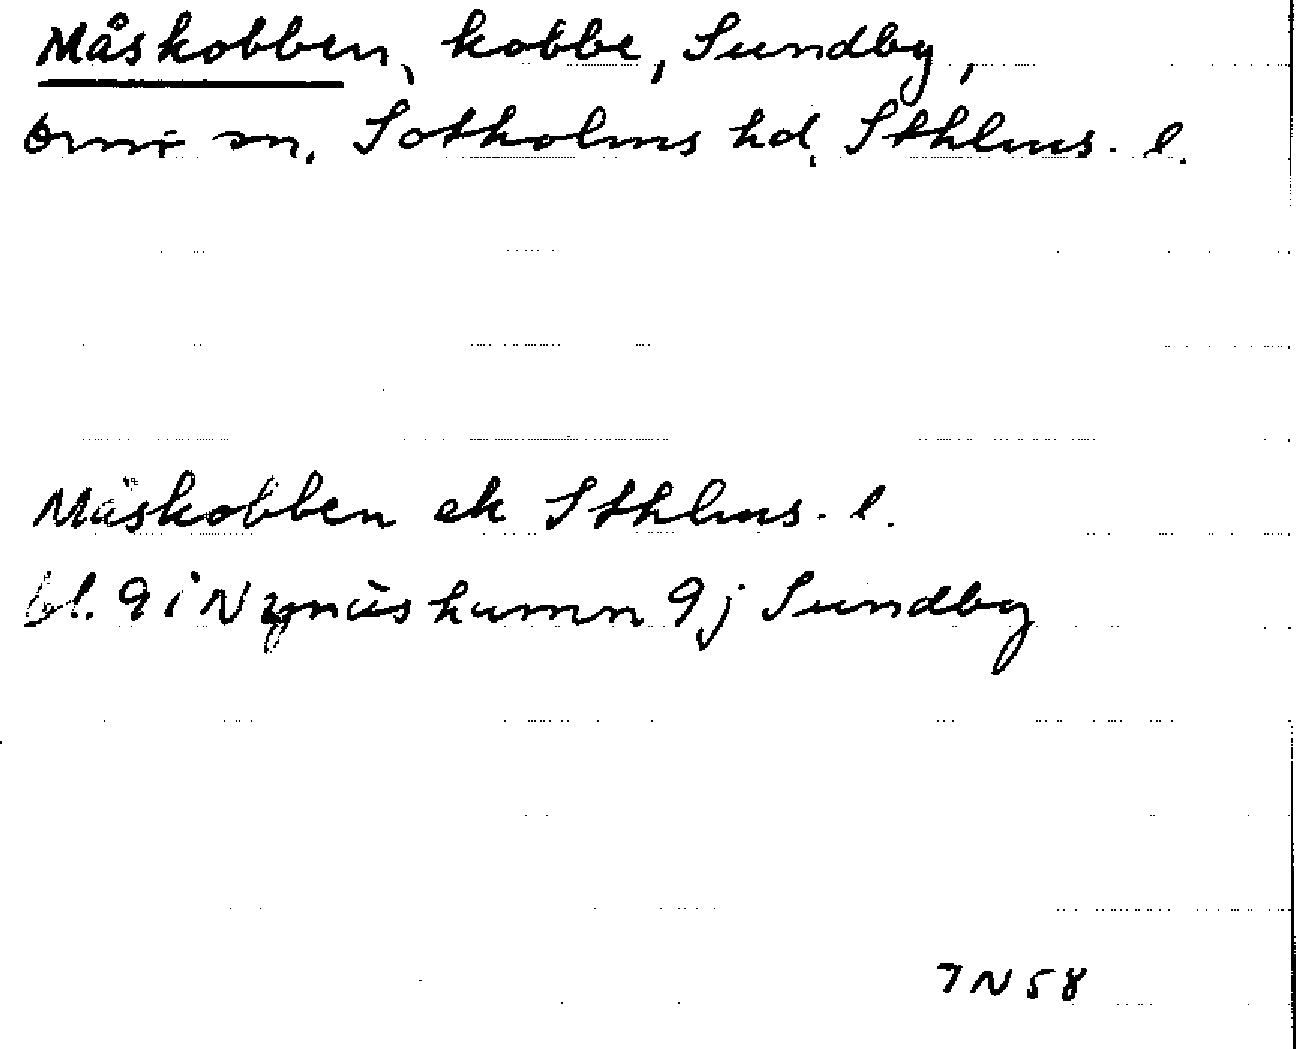 Måskobben, kobbe, Sundby,
Ornö sn, Sotholms hd, Sthlms. l.
Måskobben ek Sthlms. l.
bl. 9 i Nynäshamn 9j Sundby
7 N 58